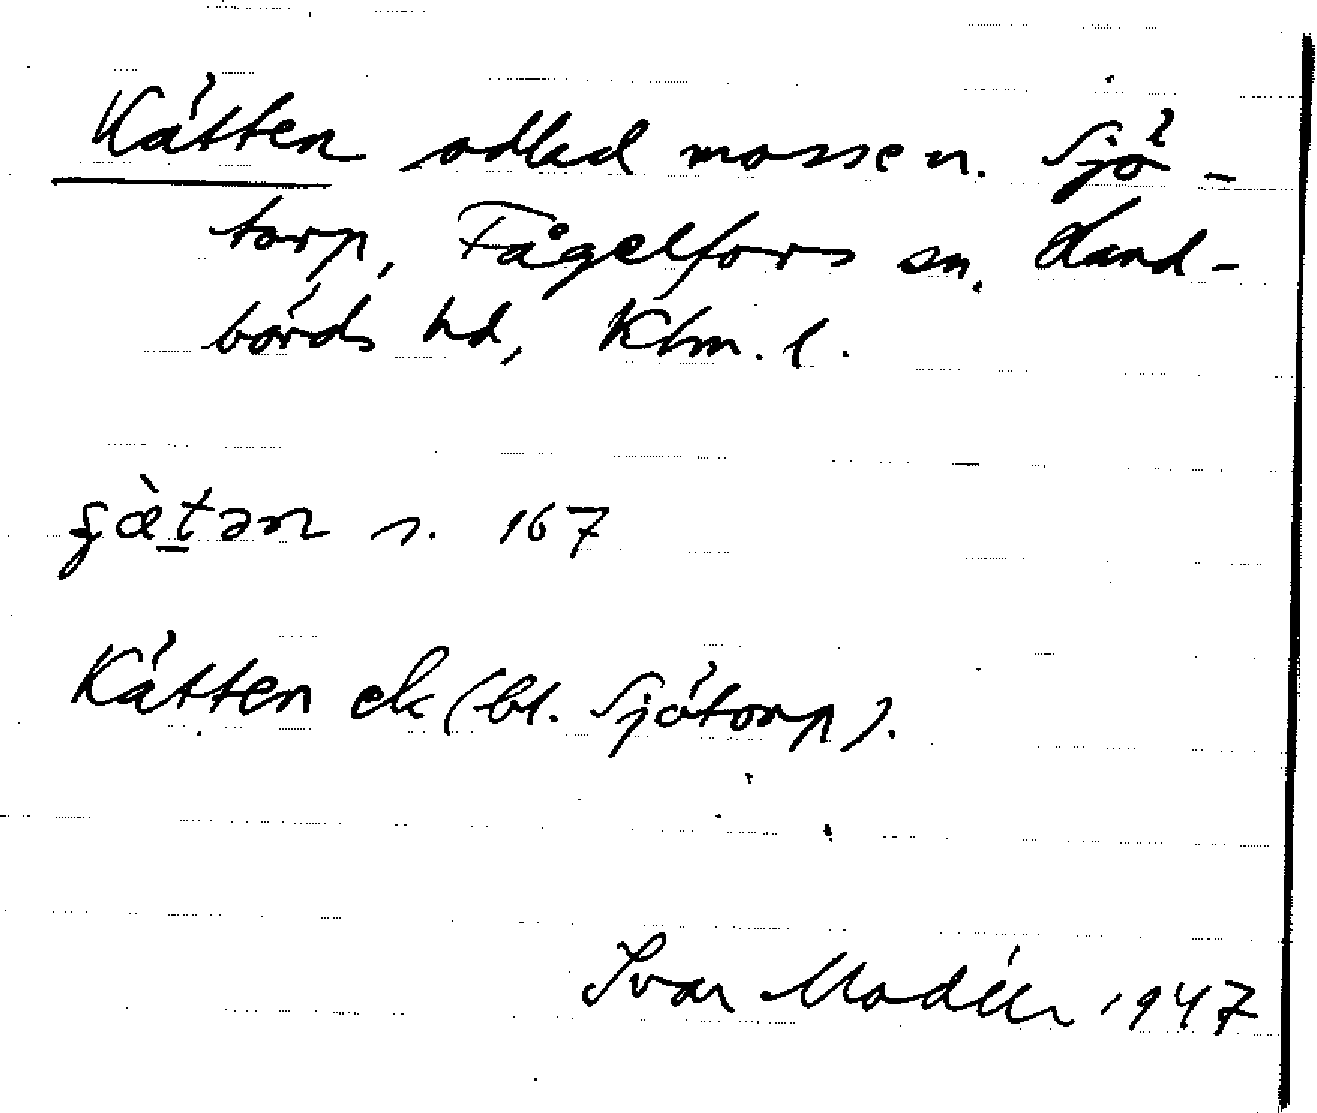 Kätten odlad mosse n. Sjö-
torp, Fågelfors sn, Hand-
börds hd, Klm. l.
s. 167
Kätten ek (bl. Sjötorp).
Ivar Modéer 1947